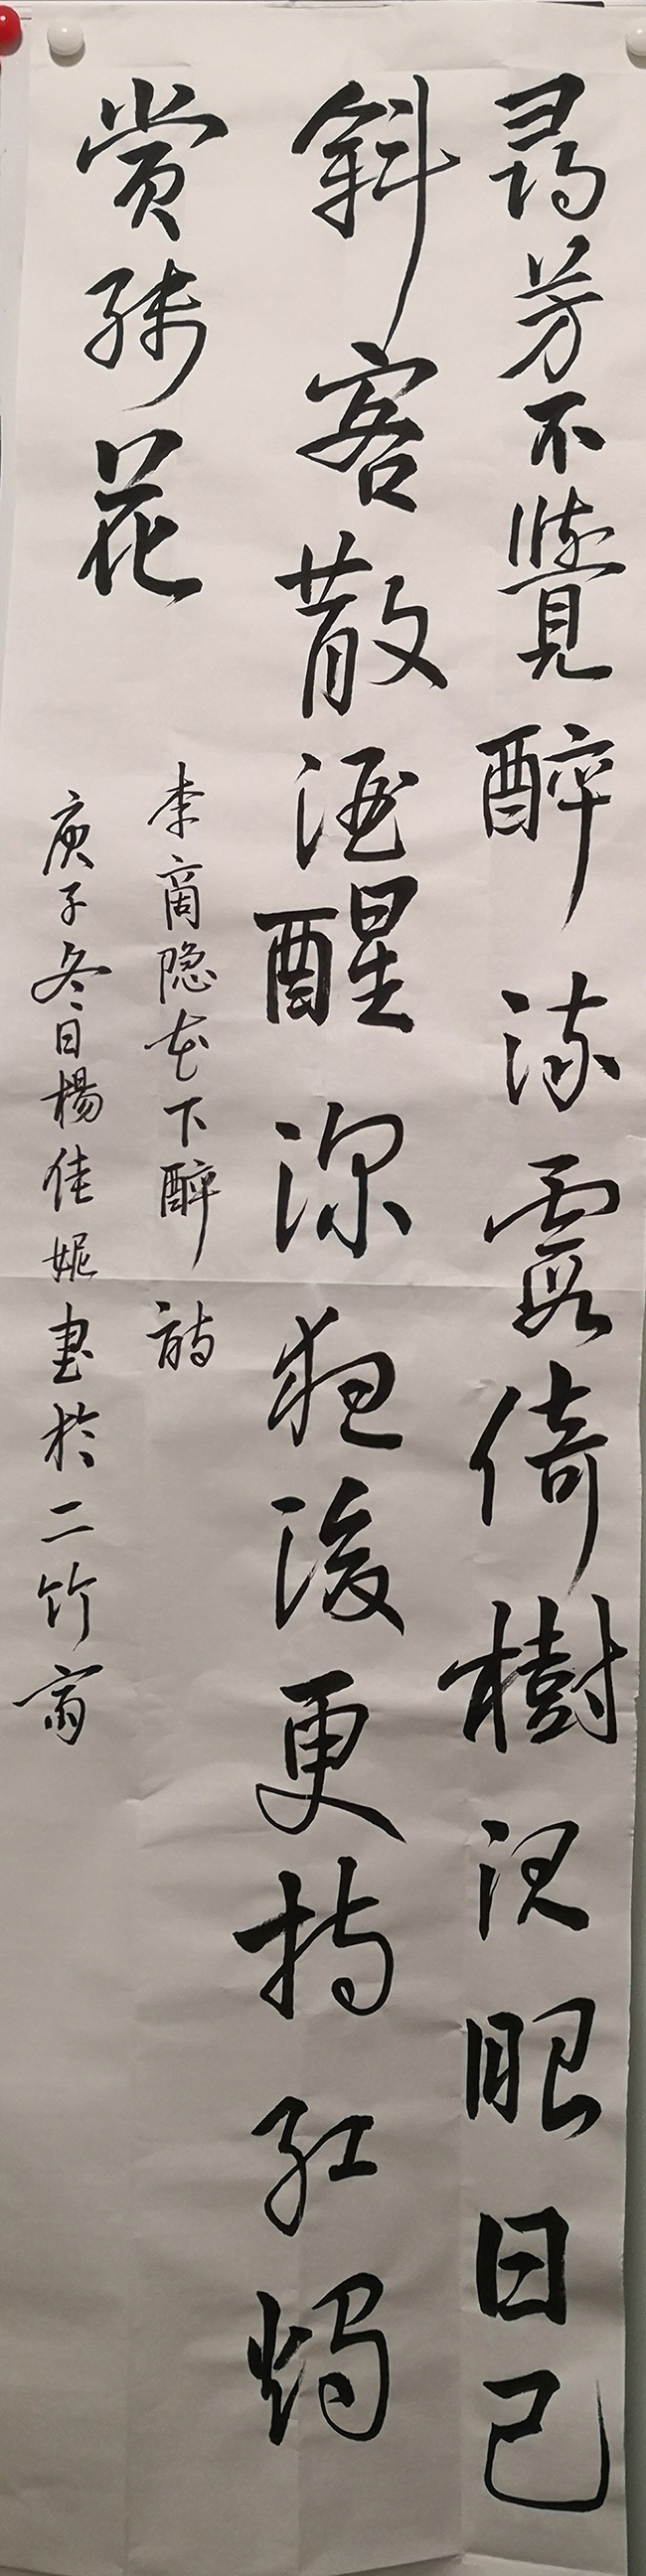 尋芳不覺醉流霞倚樹沉眠日已
斜客散酒醒深夜後更持紅燭
賞殘花
李商隐花下醉詩
庚子冬日楊佳妮書於二竹齋